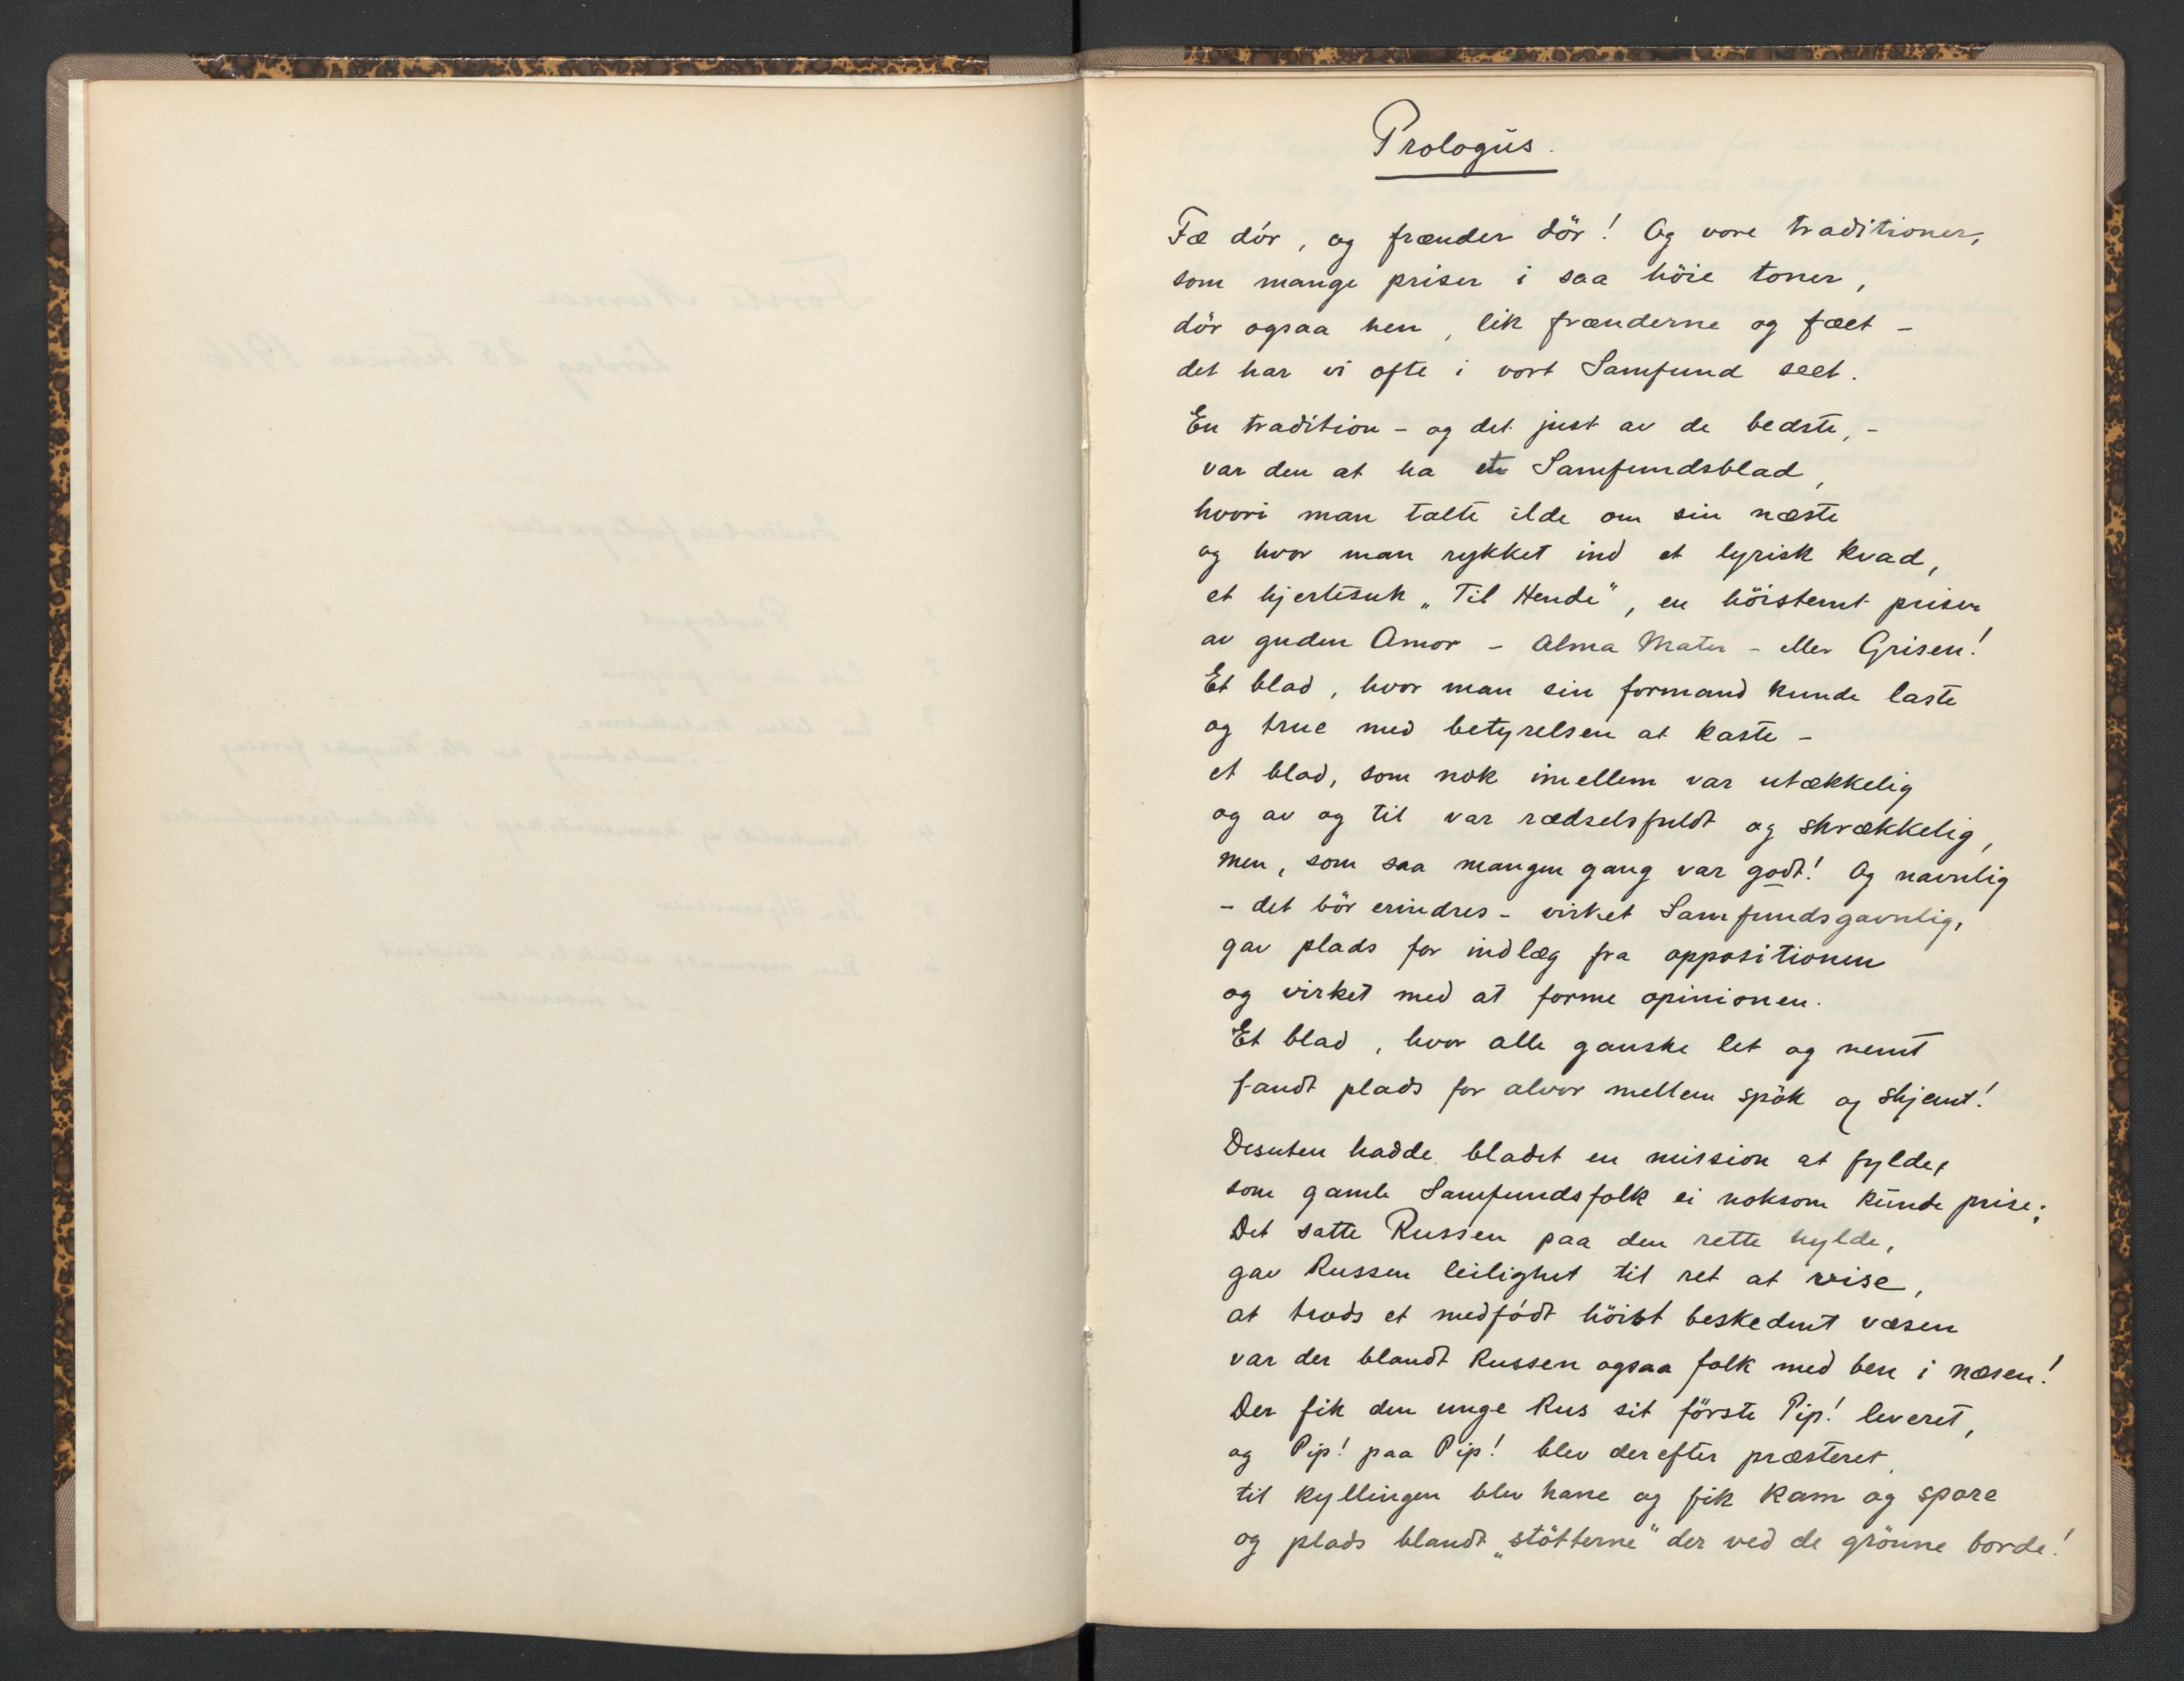 Prologus.
Fæ dör, og frænder dör! Og vore traditioner,
som mange priser i saa höie toner,
dör ogsaa hen, lik frænderne og fæet –
det har vi ofte i vort Samfund seet.
En tradition – og det just av de bedste, –
var den at ha et Samfundsblad,
hvori man talte ilde om sin næste
og hvor man rykket ind et lyrisk kvad,
et hjertesuk „Til Hende", en höistemt prisen
av guden Amor – Alma Mater – eller Grisen!
Et blad, hvor man sin formand kunde laste
og true med bestyrelsen at kaste –
et blad, som nok imellem var utækkelig
og av og til var rædselsfuldt og skrækkelig,
men, som saa mangen gang var godt! Og navnlig
– det bör erindres – virket Samfundsgavnlig,
gav plads for indlæg fra oppositionen
og virket med at forme opinionen.
Et blad, hvor alle ganske let og nemt
fandt plads for alvor mellem spök og skjemt!
Desuten hadde bladet en mission at fylde,
som gamle Samfundsfolk ei noksom kunde prise;
Det satte Russen paa den rette hylde,
gav Russen leilighet til ret at vise,
at trods et medfödt höist beskedent væsen
var der blandt Russen ogsaa folk med ben i næsen!
Der fik den unge Rus sit förste Pip! leveret,
og Pip! paa Pip! blev derefter præsteret,
til kyllingen blev hane og fik kam og spore
og plads blandt „stötterne" der ved de grönne borde!